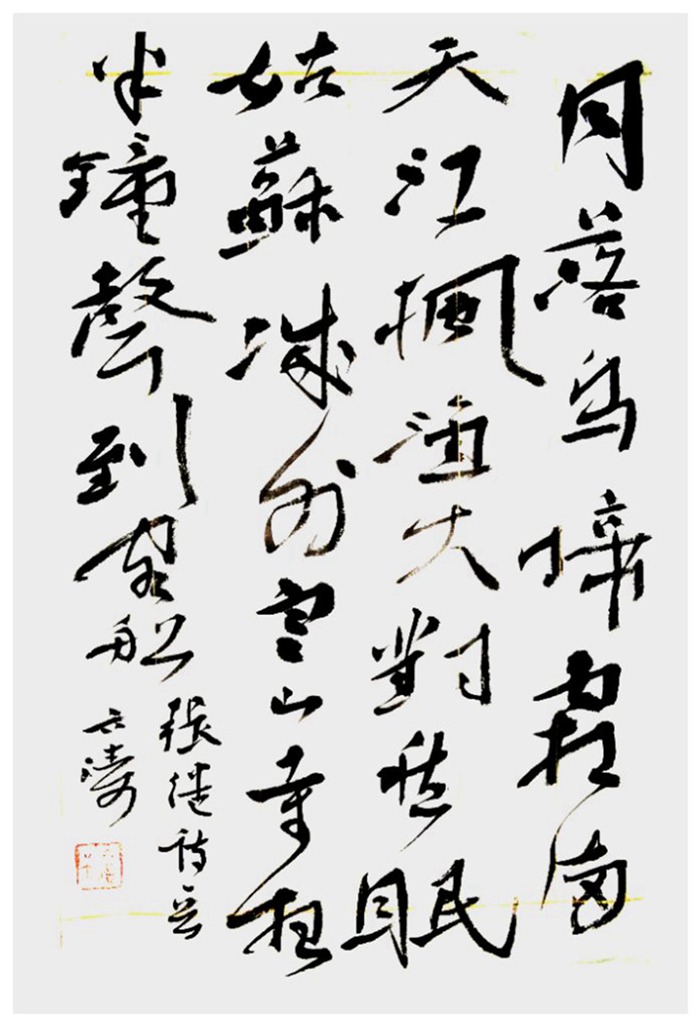 月落烏啼霜滿
天江楓漁火對愁眠
姑蘇城外寒山寺夜
半鐘聲到客船
張继詩
濤